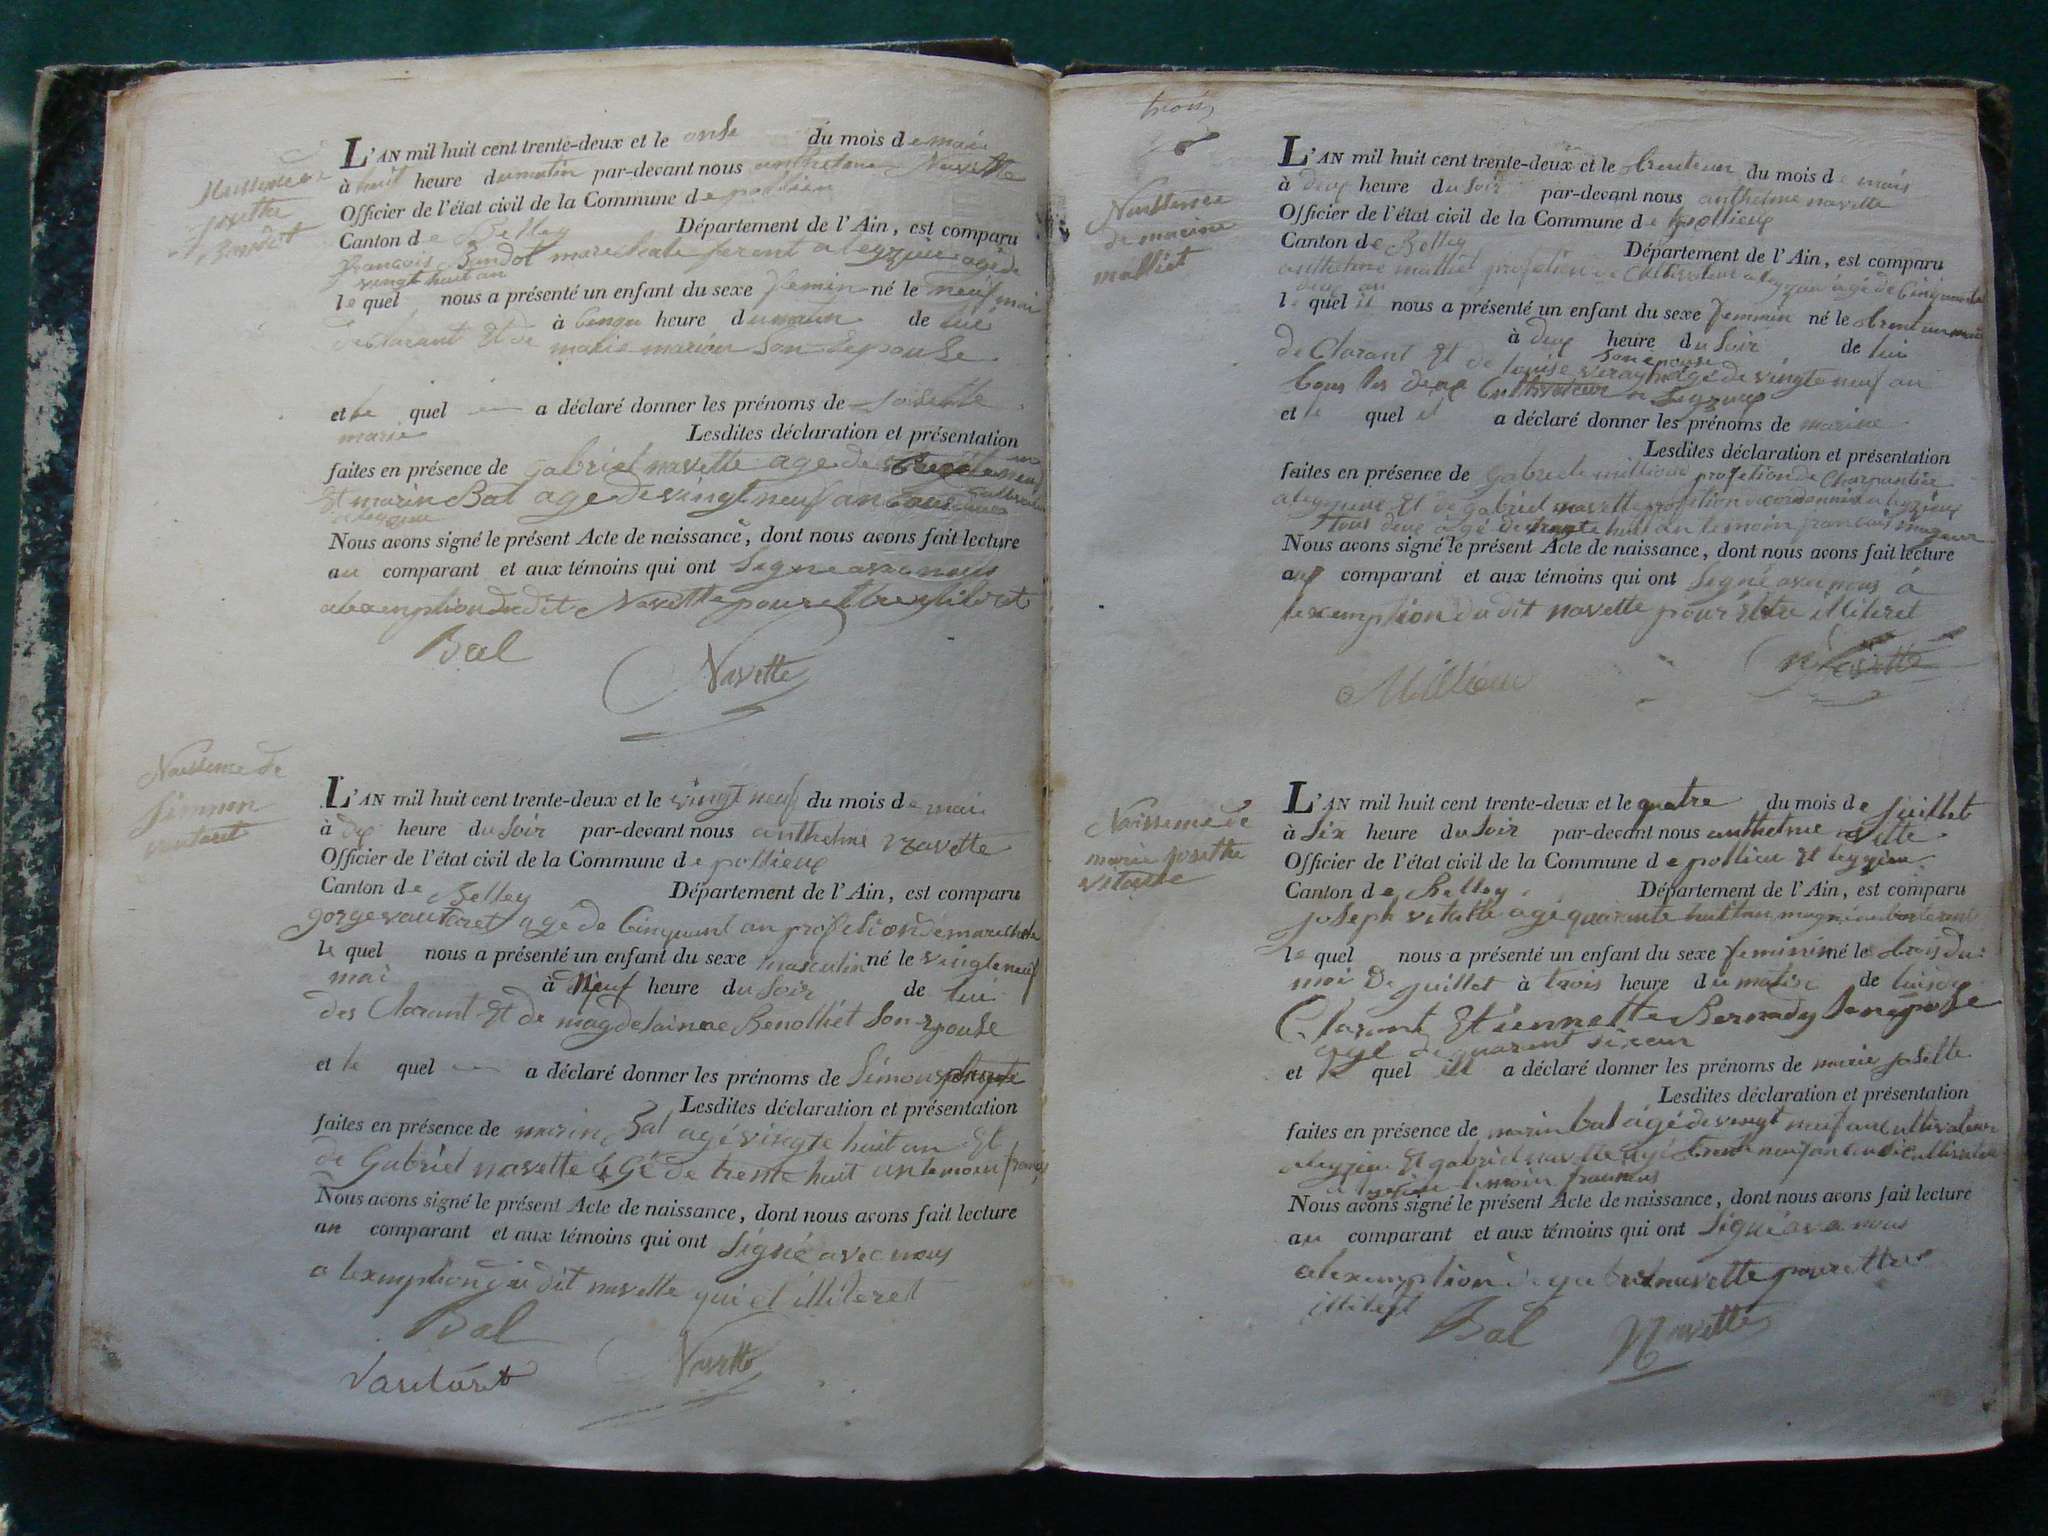 Naissence de
josette
L'AN mil huit cent trente-deux et le onse du mois de mai
à huit heure du matin par-devant nous anthelme Navette
Officier de l'état civil de la Commune de pollieu
Canton de Belley Département de l'Ain, est comparu
francois marechale ferent a leyzieu agé de
vingt huit an
le quel nous a présenté un enfant du sexe femin né le neuf mai
à heure du matin de lui
declarant Et de marie son Epouse
et le quel a déclaré donner les prénoms de josette
marie Lesdites déclaration et présentation
faites en présence de gabriel navette age de
Et marin Bal age de vingt neuf an
Nous avons signé le présent Acte de naissance, dont nous avons fait lecture
au comparant et aux témoins qui ont Signé avec nous
a lexemption du dit Navette pour etre illiteret
Bal
Navette
Naissence de
Simon
vauteret
L'AN mil huit cent trente-deux et le vingt neuf du mois de mai
à dix heure du Soir par-devant nous anthelme navette
Officier de l'état civil de la Commune de pollieux
Canton de Belley Département de l'Ain, est comparu
gorge vauteret age de Cinquant an profetion de marechale
le quel nous a présenté un enfant du sexe masculin né le vingt neuf
mai à neuf heure du Soir de lui
des Clarant Et de magdelainne Benolliet Son Epouse
et le quel a déclaré donner les prénoms de Simon
Lesdites déclaration et présentation
faites en présence de marin Bal agé vingte huit an Et
de Gabriel navette agé de trente huit an temoin francais
Nous avons signé le présent Acte de naissance, dont nous avons fait lecture
au comparant et aux témoins qui ont Signé avec nous
a lexemption du dit navette qui et illiteret
Bal
Vauteret
Navette
trois
Naissence
de marine
malliet
L'AN mil huit cent trente-deux et le trente un du mois de mais
à deux heure du Soir par-devant nous anthelme navette
Officier de l'état civil de la Commune de pollieux
Canton de Belley Département de l'Ain, est comparu
anthelme malliet profetion de Cultivateur a leyzieu agé de Cinquante
deux an
le quel il nous a présenté un enfant du sexe femmin né le trent un mais
à deux heure du Soir de lui
de Clarant Et de louise son epouse agé de vingte neuf an
tous les deux Cultivateur a Leyzieux
et le quel il a déclaré donner les prénoms de marine
Lesdites déclaration et présentation
faites en présence de Gabriele millioux profetion de Charpentier
a leyzieux Et de gabriel navette profetion de cordonnier a leyzieux
tous deux agé de trente huit an temoin francais
Nous avons signé le présent Acte de naissance, dont nous avons fait lecture
aux comparant et aux témoins qui ont Signé avec nous à
lexemption du dit navette pour etre illiteret
Millioux
Navette
Naissence de
marie josethe
vitalle
L'AN mil huit cent trente-deux et le quatre du mois de juillet
à Six heure du Soir par-devant nous anthelme navette
Officier de l'état civil de la Commune de pollieu Et leyzieu
Canton de Belley Département de l'Ain, est comparu
joseph vitalle agé quarante huit an
le quel nous a présenté un enfant du sexe feminin né le trois du
moi De juillet à trois heure du matin de lui de
Clarant Et iennette Bernady Son epose
agé de quarant six an
et le quel ill a déclaré donner les prénoms de marie josette
Lesdites déclaration et présentation
faites en présence de marin bal agé de vingt neuf an Cultivateur
a leyzieu Et gabriel navette agé trente neuf an cultivateur
a leyzieu temoin francais
Nous avons signé le présent Acte de naissance, dont nous avons fait lecture
au comparant et aux témoins qui ont Signé avec nous
a lexemption de gabriel navette pour etre
illiteret
Bal
Navette